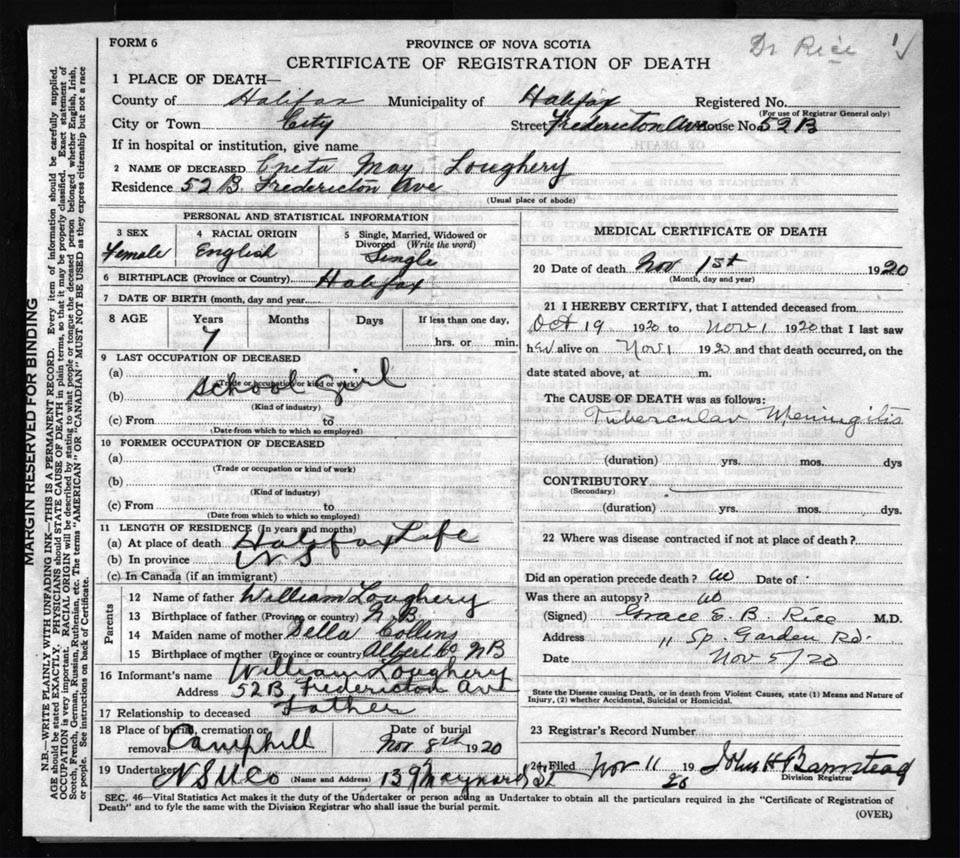 Dr Rice 1√
FORM 6
PROVINCE OF NOVA SCOTIA
CERTIFICATE OF REGISTRATION OF DEATH
1 PLACE OF DEATH—
County of Halifax Municipality of Halifax Registered No.
(For use of Registrar General only)
City or Town City Street Fredericton Ave House No. 52 B
If in hospital or institution, give name
2 NAME OF DECEASED May Loughery
Residence 52 B. Fredericton Ave
(Usual place of abode)
PERSONAL AND STATISTICAL INFORMATION
3 SEX Female
4 RACIAL ORIGIN English
5 Single, Married, Widowed or Divorced (Write the word) Single
6 BIRTHPLACE (Province or Country) Halifax
7 DATE OF BIRTH (month, day and year)
8 AGE Years 7 Months Days If less than one day, hrs. or min.
9 LAST OCCUPATION OF DECEASED
(a) School girl
(Trade or occupation or kind of work)
(b)
(Kind of industry)
(c) From to
(Date from which to which so employed)
10 FORMER OCCUPATION OF DECEASED
(a)
(Trade or occupation or kind of work)
(b)
(Kind of industry)
(c) From to
(Date from which to which so employed)
11 LENGTH OF RESIDENCE (In years and months)
(a) At place of death Halifax Life
(b) In province N S
(c) In Canada (if an immigrant)
Parents
12 Name of father William Loughery
13 Birthplace of father (Province or country) N. B.
14 Maiden name of mother Della Collins
15 Birthplace of mother (Province or country) Albert Co NB
16 Informant's name William Loughery
Address 52B Fredericton Ave
17 Relationship to deceased Father
18 Place of burial, cremation or removal Camphill
Date of burial Nov 8th 1920
19 Undertaker N S U Co (Name and Address) 139 Maynard St
MEDICAL CERTIFICATE OF DEATH
20 Date of death Nov 1st 1920
(Month, day and year)
21 I HEREBY CERTIFY, that I attended deceased from
Oct 19 1920 to Nov. 1 1920 that I last saw
her alive on Nov 1 1920 and that death occurred, on the
date stated above, at m.
The CAUSE OF DEATH was as follows:
Tubercular Meningitis
(duration) yrs. mos. dys
CONTRIBUTORY
(Secondary)
(duration) yrs. mos. dys.
22 Where was disease contracted if not at place of death?
Did an operation precede death? no Date of
Was there an autopsy? no
(Signed) Grace E. B. Rice M.D.
Address 11 Sp. Garden Rd.
Date Nov 5/20
State the Disease causing Death, or in death from Violent Causes, state (1) Means and Nature of
Injury, (2) whether Accidental, Suicidal or Homicidal.
23 Registrar's Record Number
24 Filed Nov 11 1920 John H Barnstead
Division Registrar
SEC. 46—Vital Statistics Act makes it the duty of the Undertaker or person acting as Undertaker to obtain all the particulars required in the "Certificate of Registration of
Death" and to fyle the same with the Division Registrar who shall issue the burial permit.
(OVER)
MARGIN RESERVED FOR BINDING
N.B.—WRITE PLAINLY WITH UNFADING INK—THIS IS A PERMANENT RECORD. Every item of information should be carefully supplied.
AGE should be stated EXACTLY. PHYSICIANS should STATE CAUSE OF DEATH in plain terms, so that it may be properly classified. Exact statement of
OCCUPATION is very important. RACIAL ORIGIN will be described by stating to what people or tongue the deceased person belonged, whether English, Irish,
Scotch, French, German, Russian, Ruthenian, etc. The terms "AMERICAN" OR "CANADIAN" MUST NOT BE USED as they express citizenship but not a race
or people. See instructions on back of Certificate.